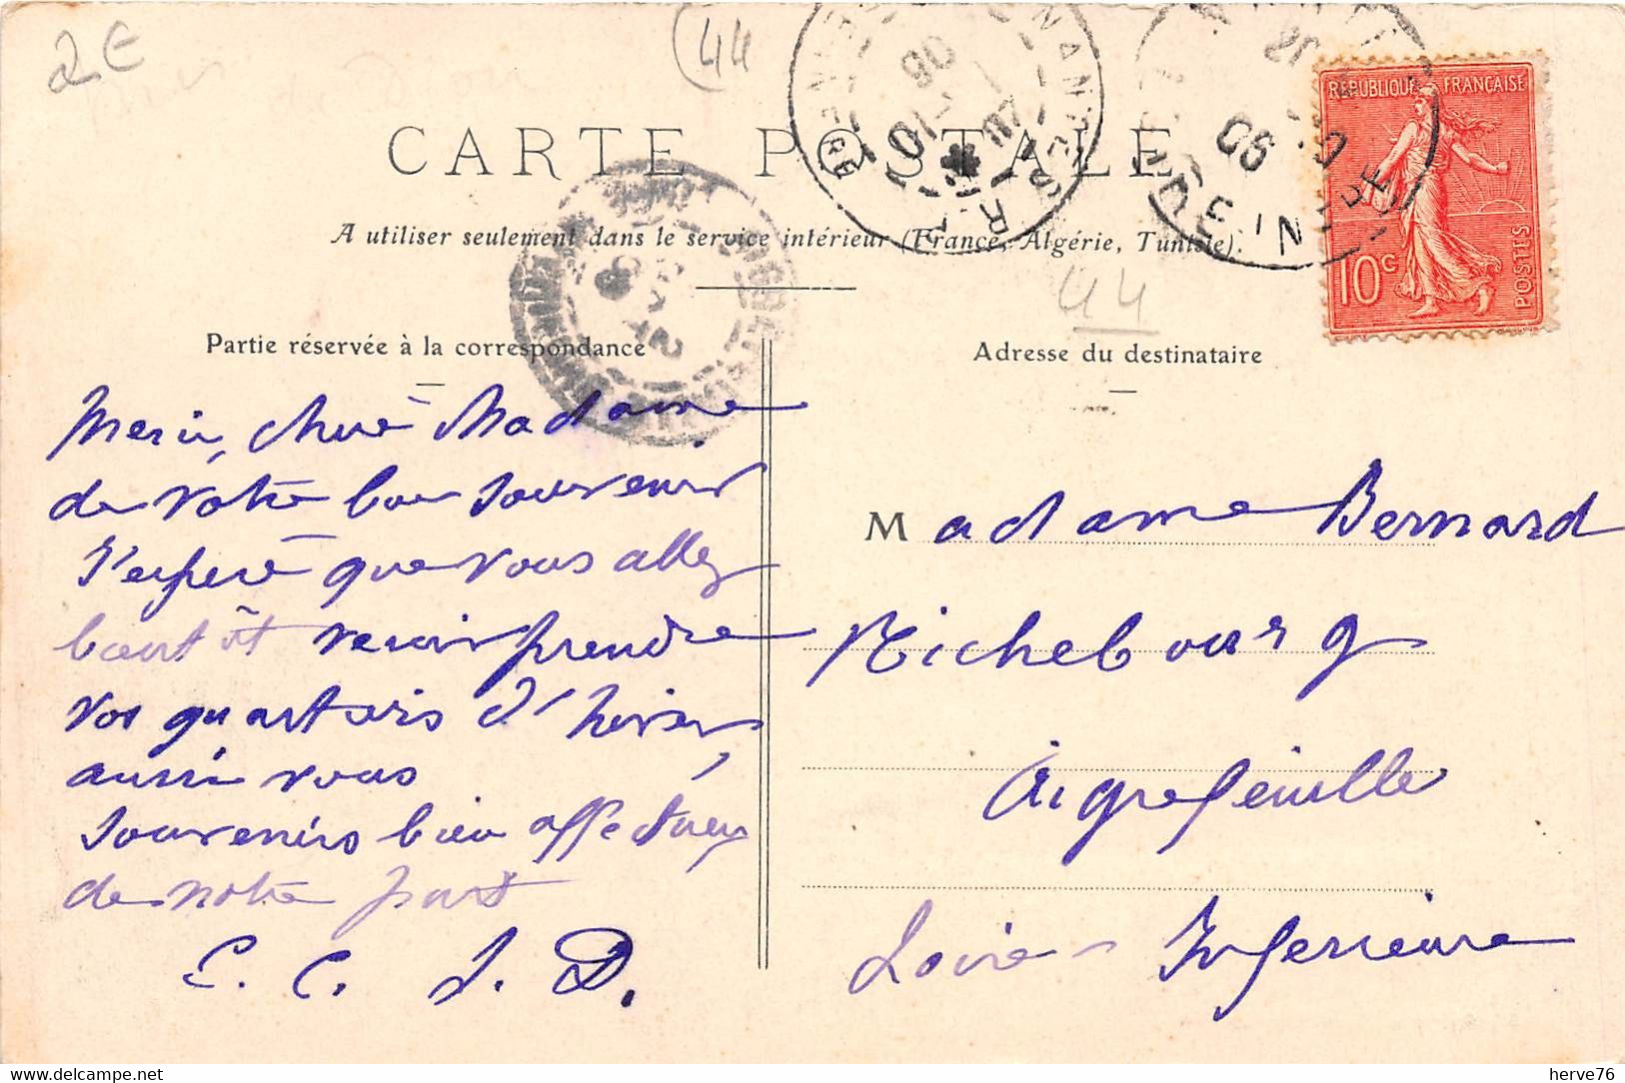 2€
44
CARTE POSTALE
A utiliser seulement dans le service intérieur (France, Algérie, Tunisie).
44
REPUBLIQUE FRANÇAISE
10c
POSTES
NANTES
06
Partie réservée à la correspondance
Merci, chère Madame
de votre bon souvenir
J'espère que vous allez
bientôt venir prendre
vos quartiers d'hiver,
aussi nous
souvenirs bien affectueux
de notre part
E. C. J. D.
Adresse du destinataire
Madame Bernard
Richebourg
Aigrefeuille
Loire-Inferieure
https://www.delcampe.net
herve76